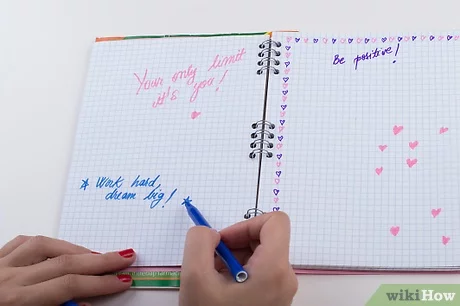 Your only limit
it's you!
* Work hard,
dream big! *
Be positive!
wikiHow